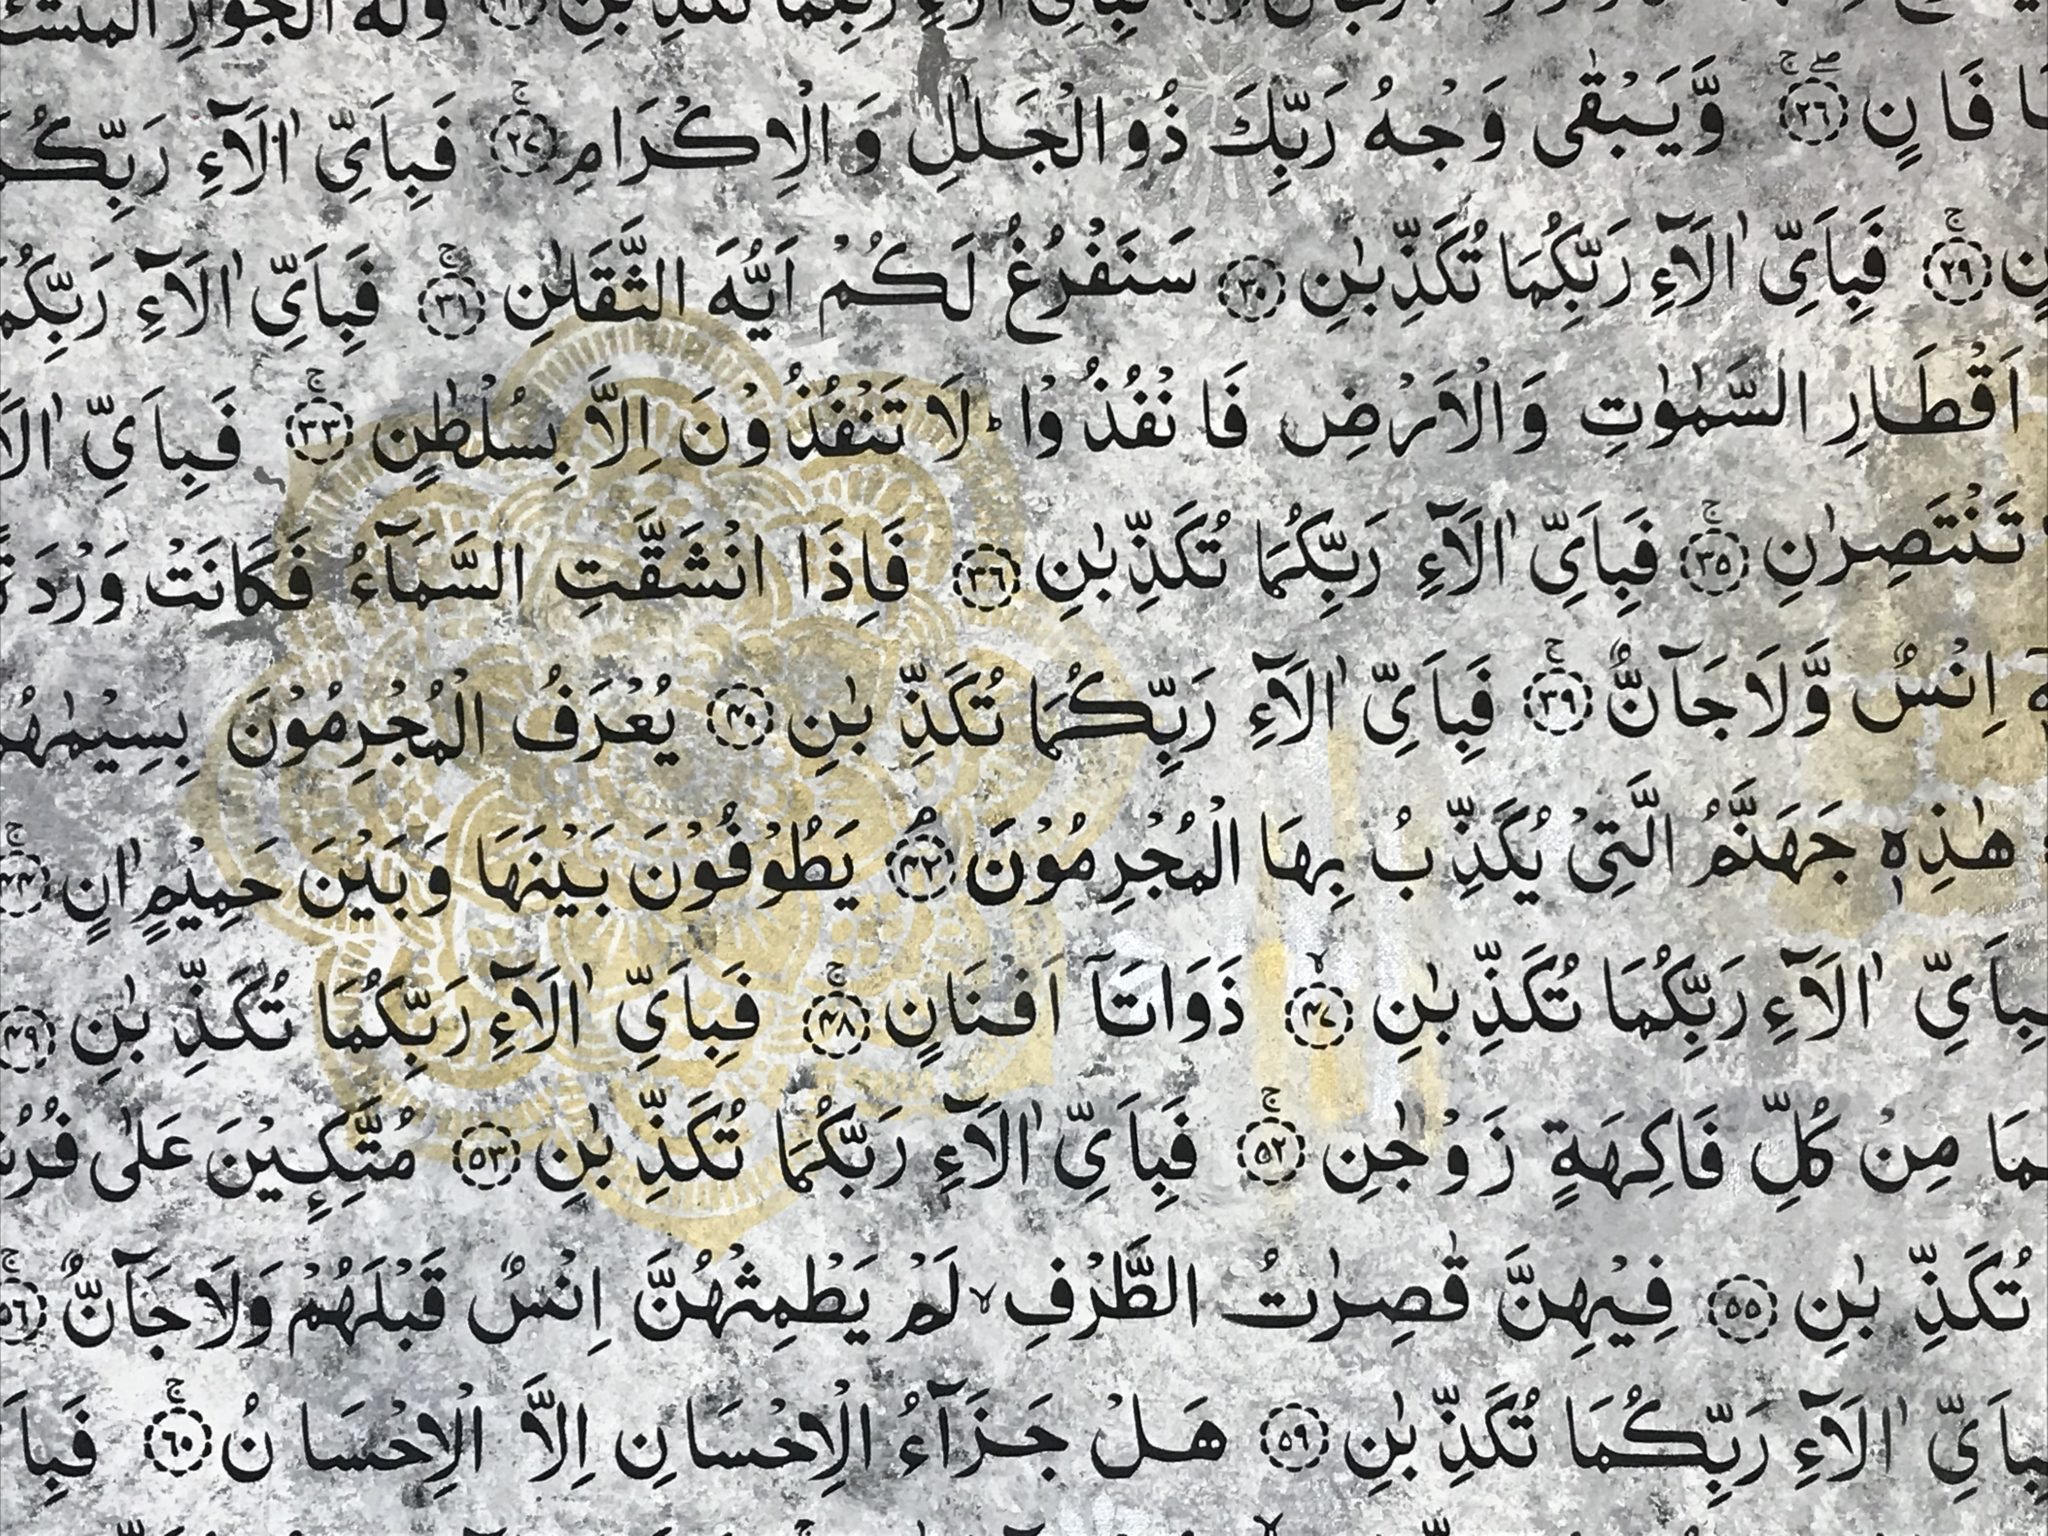 فَبِاَيِّ اٰلَآءِ رَبِّكُمَا تُكَذِّبٰنِ وَلَهُ الْجَوَارِ
فَانٍ ۝٢٦ وَّيَبْقٰى وَجْهُ رَبِّكَ ذُو الْجَلٰلِ وَالْاِكْرَامِ ۝٢٧ فَبِاَيِّ اٰلَآءِ رَبِّكُمَا
۝٢٩ فَبِاَيِّ اٰلَآءِ رَبِّكُمَا تُكَذِّبٰنِ ۝٣٠ سَنَفْرُغُ لَكُمْ اَيُّهَ الثَّقَلٰنِ ۝٣١ فَبِاَيِّ اٰلَآءِ رَبِّكُمَا
اَقْطَارِ السَّمٰوٰتِ وَالْاَرْضِ فَانْفُذُوْا ؕ لَا تَنْفُذُوْنَ اِلَّا بِسُلْطٰنٍ ۝٣٣ فَبِاَيِّ
تَنْتَصِرٰنِ ۝٣٥ فَبِاَيِّ اٰلَآءِ رَبِّكُمَا تُكَذِّبٰنِ ۝٣٦ فَاِذَا انْشَقَّتِ السَّمَآءُ فَكَانَتْ وَرْدَةً
اِنْسٌ وَّلَا جَآنٌّ ۝٣٩ فَبِاَيِّ اٰلَآءِ رَبِّكُمَا تُكَذِّبٰنِ ۝٤٠ يُعْرَفُ الْمُجْرِمُوْنَ بِسِيْمٰهُمْ
هٰذِهٖ جَهَنَّمُ الَّتِيْ يُكَذِّبُ بِهَا الْمُجْرِمُوْنَ ۝٤٣ يَطُوْفُوْنَ بَيْنَهَا وَبَيْنَ حَمِيْمٍ اٰنٍ ۝٤٤
فَبِاَيِّ اٰلَآءِ رَبِّكُمَا تُكَذِّبٰنِ ۝٤٧ ذَوَاتَآ اَفْنَانٍ ۝٤٨ فَبِاَيِّ اٰلَآءِ رَبِّكُمَا تُكَذِّبٰنِ ۝٤٩
مِنْ كُلِّ فَاكِهَةٍ زَوْجٰنِ ۝٥٢ فَبِاَيِّ اٰلَآءِ رَبِّكُمَا تُكَذِّبٰنِ ۝٥٣ مُتَّكِـِٕيْنَ عَلٰى
تُكَذِّبٰنِ ۝٥٥ فِيْهِنَّ قٰصِرٰتُ الطَّرْفِ ۙ لَمْ يَطْمِثْهُنَّ اِنْسٌ قَبْلَهُمْ وَلَا جَآنٌّ ۝٥٦
فَبِاَيِّ اٰلَآءِ رَبِّكُمَا تُكَذِّبٰنِ ۝٥٩ هَلْ جَزَآءُ الْاِحْسَانِ اِلَّا الْاِحْسَانُ ۝٦٠